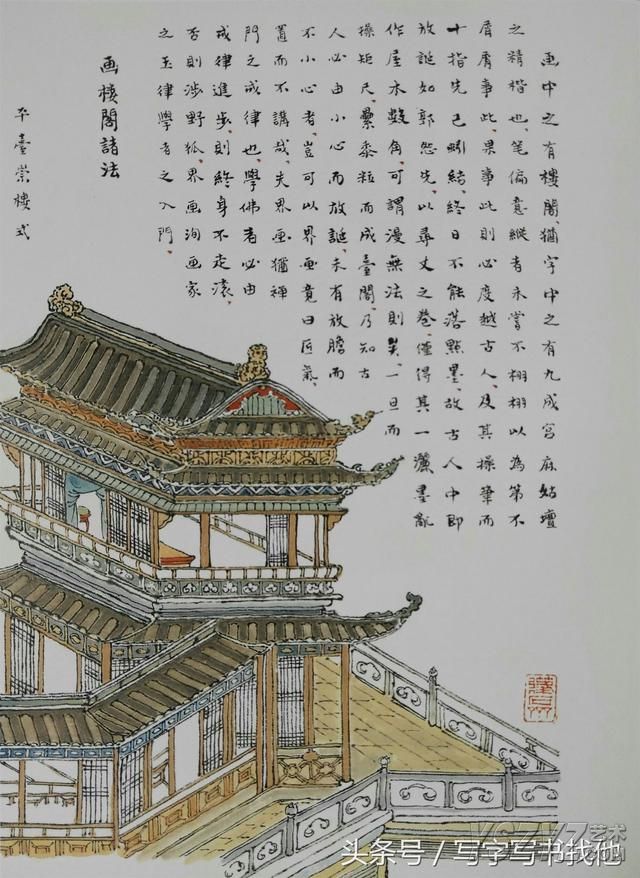 画中之有樓閣、猶字中之有九成宫麻姑壇
之精楷也、笔偏意縱者未嘗不栩栩以為第不
屑屑事此、果事此則必度越古人、及其操筆而
十指先已蚓結、終日不能落點墨、故古人中即
放誕如郭恕先、以尋丈之卷、僅得其一灑墨亂
作屋木數角、可謂漫無法則矣、一旦而
操矩尺、纍黍粒而成臺閣、乃知古
人必由小心而放誕、未有放膽而
不小心者、豈可以界画竟曰匠氣、
置而不講哉、夫界画猶禅
門之戒律也、學佛者必由
戒律進步、則終身不走滾、
否則涉野狐、界画洵画家
之玉律學者之入門、
画樓閣諸法
平臺崇樓式
艺术
头条号／写字写书找他